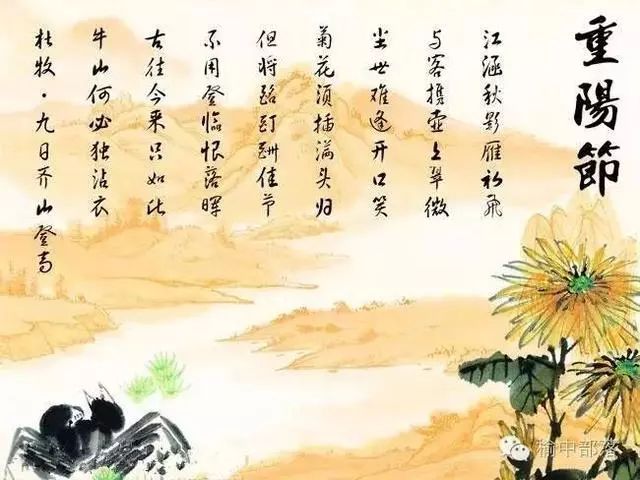 重陽節
江涵秋影雁初飛
与客携壶上翠微
尘世难逢开口笑
菊花须插满头归
但将酩酊酬佳节
不用登临恨落晖
古往今来只如此
牛山何必独沾衣
杜牧·九日齐山登高
榆中部落